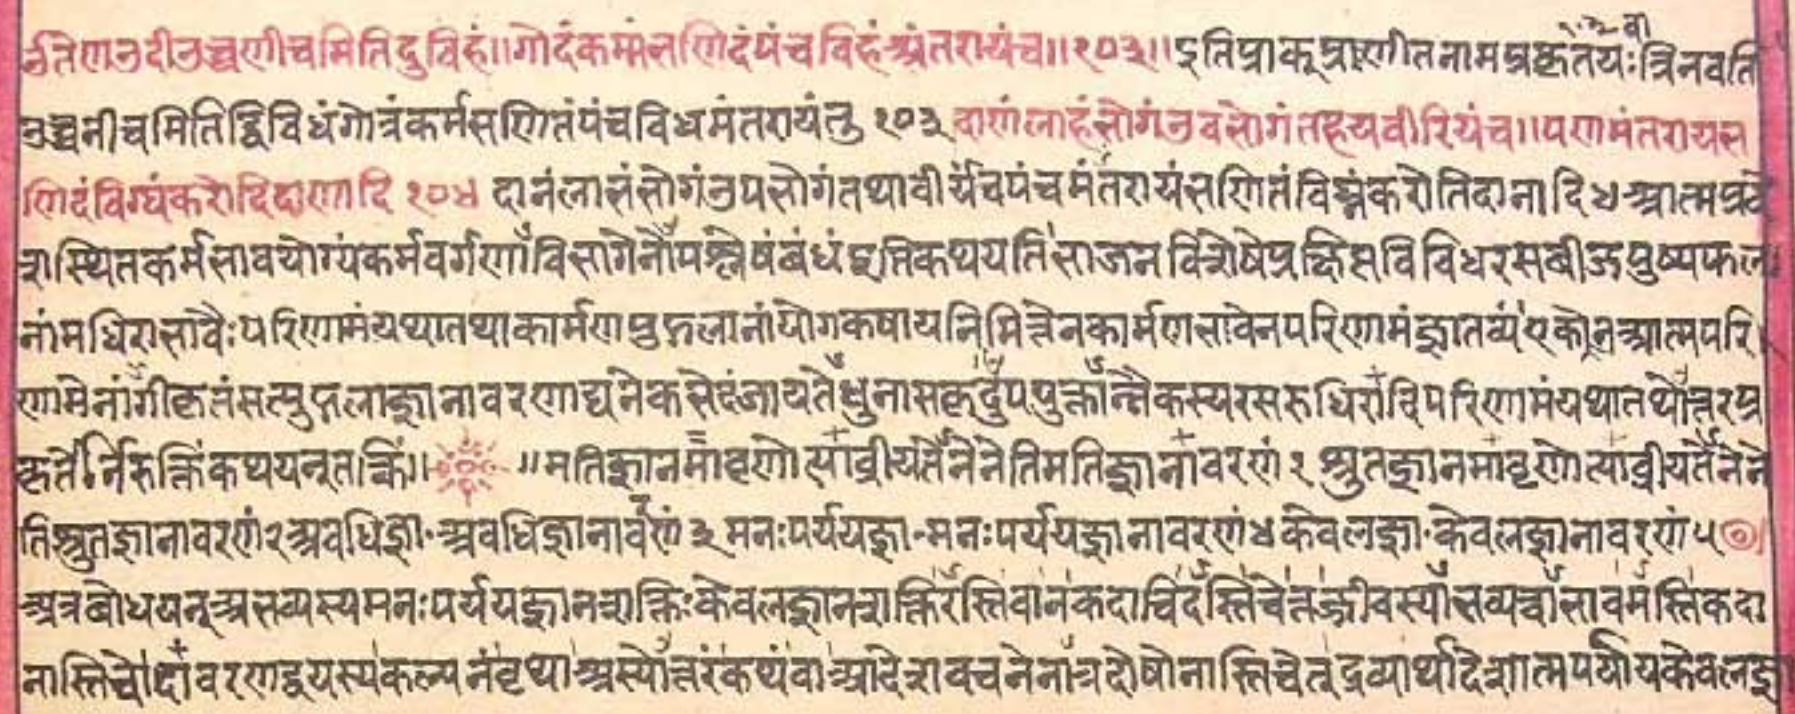 तेणउदीउच्चणीचमितिदुविहं॥गोदंकम्मंभणिदंपंचविहंअंतरायंच॥१०३॥इतिप्राक्प्रणीतनामप्रकृतयःत्रिनवति
उच्चनीचमितिद्विविधंगोत्रंकर्मभणितंपंचविधमंतरायंतु १०३ दाणंलाहंभोगंउवभोगंतहयवीरियंच॥पणमंतरायभ
णिदंविग्घंकरोदिदाणादि १०४ दानंलाभंभोगंउपभोगंतथावीर्यंचपंचमंतरायंभणितंविघ्नंकरोतिदानादि ४ आत्मप्रदे
शास्थितकर्मभावयोग्यंकर्मवर्गणाविभागेनोपश्लेषंबंधंइतिकथयतिभाजनविशेषेप्रक्षिप्तविविधरसबीजपुष्पफल
नांमधिराभावैःपरिणामंयथातथाकार्मणपुद्गलानांयोगकषायनिमित्तेनकार्मणभावेनपरिणामंज्ञातव्यंएकेनआत्मपरि
णामेनांगीकृतंसत्पुद्गलाज्ञानावरणाद्यनेकभेदंजायतेधुनासकृदुपपुक्तान्नैकस्यरसरुधिरादिपरिणामंयथातथोत्तरप्र
कृतेर्निरुक्तिंकथयन्नूतत्किं॥ ॥मतिज्ञानमावृणोत्याव्रीयतेनेनेतिमतिज्ञानावरणं १ श्रुतज्ञानमावृणोत्याव्रीयतेनेने
तिश्रुतज्ञानावरणं२अवधिज्ञा॰अवधिज्ञानावर्णं ३ मनःपर्ययज्ञा॰मनःपर्ययज्ञानावरणं४ केवलज्ञा॰केवलज्ञानावरणं५
अत्रबोधयन्अभव्यस्यमनःपर्ययज्ञानशक्तिःकेवलज्ञानशक्तिरस्तिवानकदाचिदस्तिचेत्तज्जीवस्याभव्यत्वाभावमस्तिकदा
नास्तिचेदावरणद्वयस्यकल्पनंवृथाअस्योत्तरंकथंवाआदेशवचनेनात्रदोषोनास्तिचेत्द्रव्यार्थादेशात्मपर्यायकेवलज्ञा